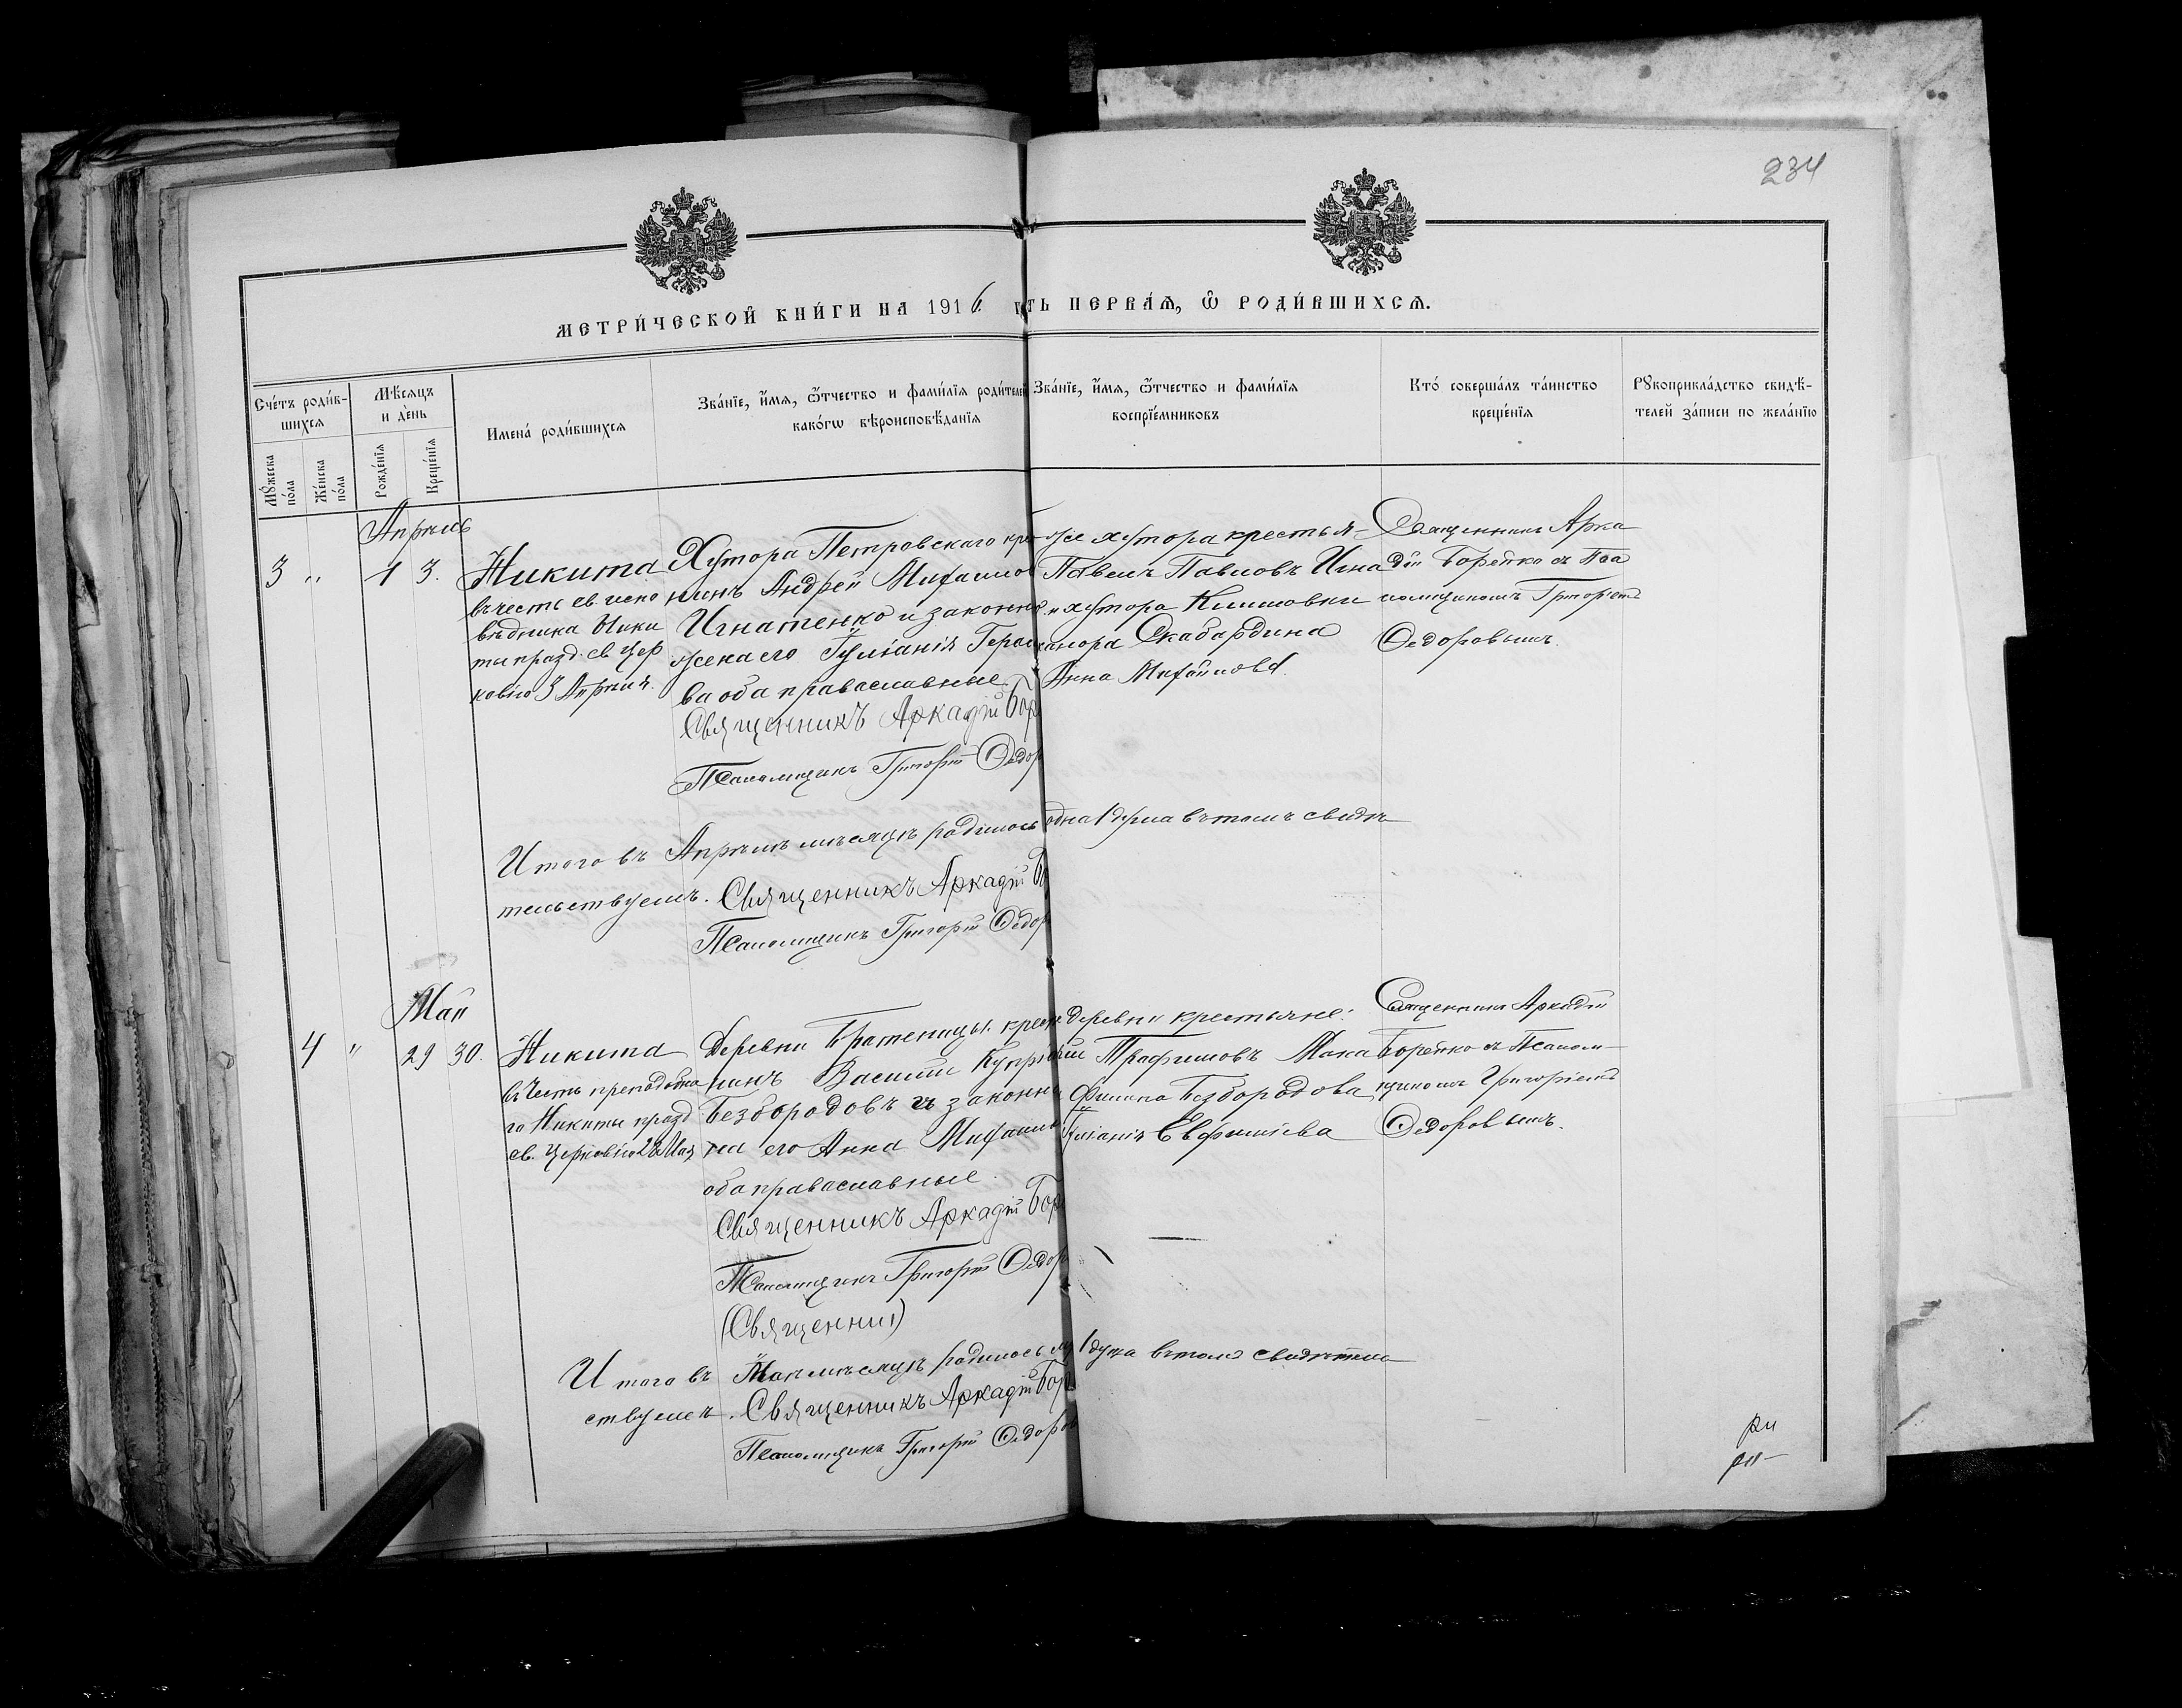 234
МЕТРИ́ЧЕСКОЙ КНИ́ГИ НА 1916 ТЬ ПЕРВА́Ѧ, Ѡ҆ РОДИ́ВШИХСѦ.
Сче́тъ роди́в-
шихсѧ
Мꙋ́жеска
по́ла
Же́нска
по́ла
Мѣ́сѧцъ
и де́нь
Рожде́нїѧ
Креще́нїѧ
Имена́ роди́вшихсѧ
Зва́нїе, и҆́мѧ, ѻ҆́тчество и фами́лїѧ роди́телей
како́гѡ вѣроисповѣ́данїѧ
Зва́нїе, и҆́мѧ, ѻ҆́тчество и фами́лїѧ
воспрїе́мниковъ
Кто́ соверша́лъ та́инство
креще́нїѧ
Рꙋкоприкла́дство свидѣ́-
телей за́писи по жела́нїю
Апрѣль
3 " 1 3.
Никита
въ честь св. испо
вѣдника Ники
ты празд. св. цер
ковію 3 Апрѣля.
Хутора Петровскаго кре
нинъ Андрей Михаилов
Игнатенко и законна
жена его Іуліанія Гера
ва оба православные
Священникъ Аркадій Бор
Псаломщикъ Григорій Ѳедор
же хутора крестья-
Павелъ Павловъ Игна
и хутора Климовки
Скабардина
Анна Михайлова.
Священникъ Арка
дій Борейко съ Пса
ломщикомъ Григоріемъ
Ѳедоровымъ.
Итого въ Апрѣлѣ мѣсяцѣ родилось одна 1 душа въ томъ свидѣ
тельствуемъ. Священникъ Аркадій Бо
Псаломщикъ Григорій Ѳедор
Май
4 " 29 30.
Никита
въ честь преподобна
го Никиты празд
св. Церковію 28 Мая
Деревни Братеницы крес
нинъ Василій Кипрі
Безбородовъ и законна
на его Анна Михаил
оба православные.
Священникъ Аркадій Бор
Псаломщикъ Григорій Ѳедор
(Священни)
деревни крестьяне:
Трофимовъ
Филипа Безбородова
Іуліанія Евфиміева
Священникъ Аркадій
Борейко съ Псалом-
щикомъ Григоріемъ
Ѳедоровымъ.
Итого въ Маѣ мѣсяцѣ родилось 1 душа въ томъ свидѣтель
ствуемъ. Священникъ Аркадій Бор
Псаломщикъ Григорій Ѳедоров